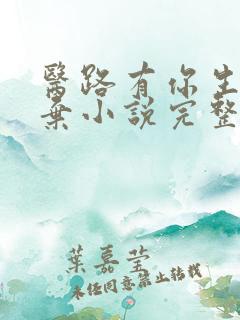 醫路有你生
棄小說完整
葉嘉瑩
未經同意禁止轉載